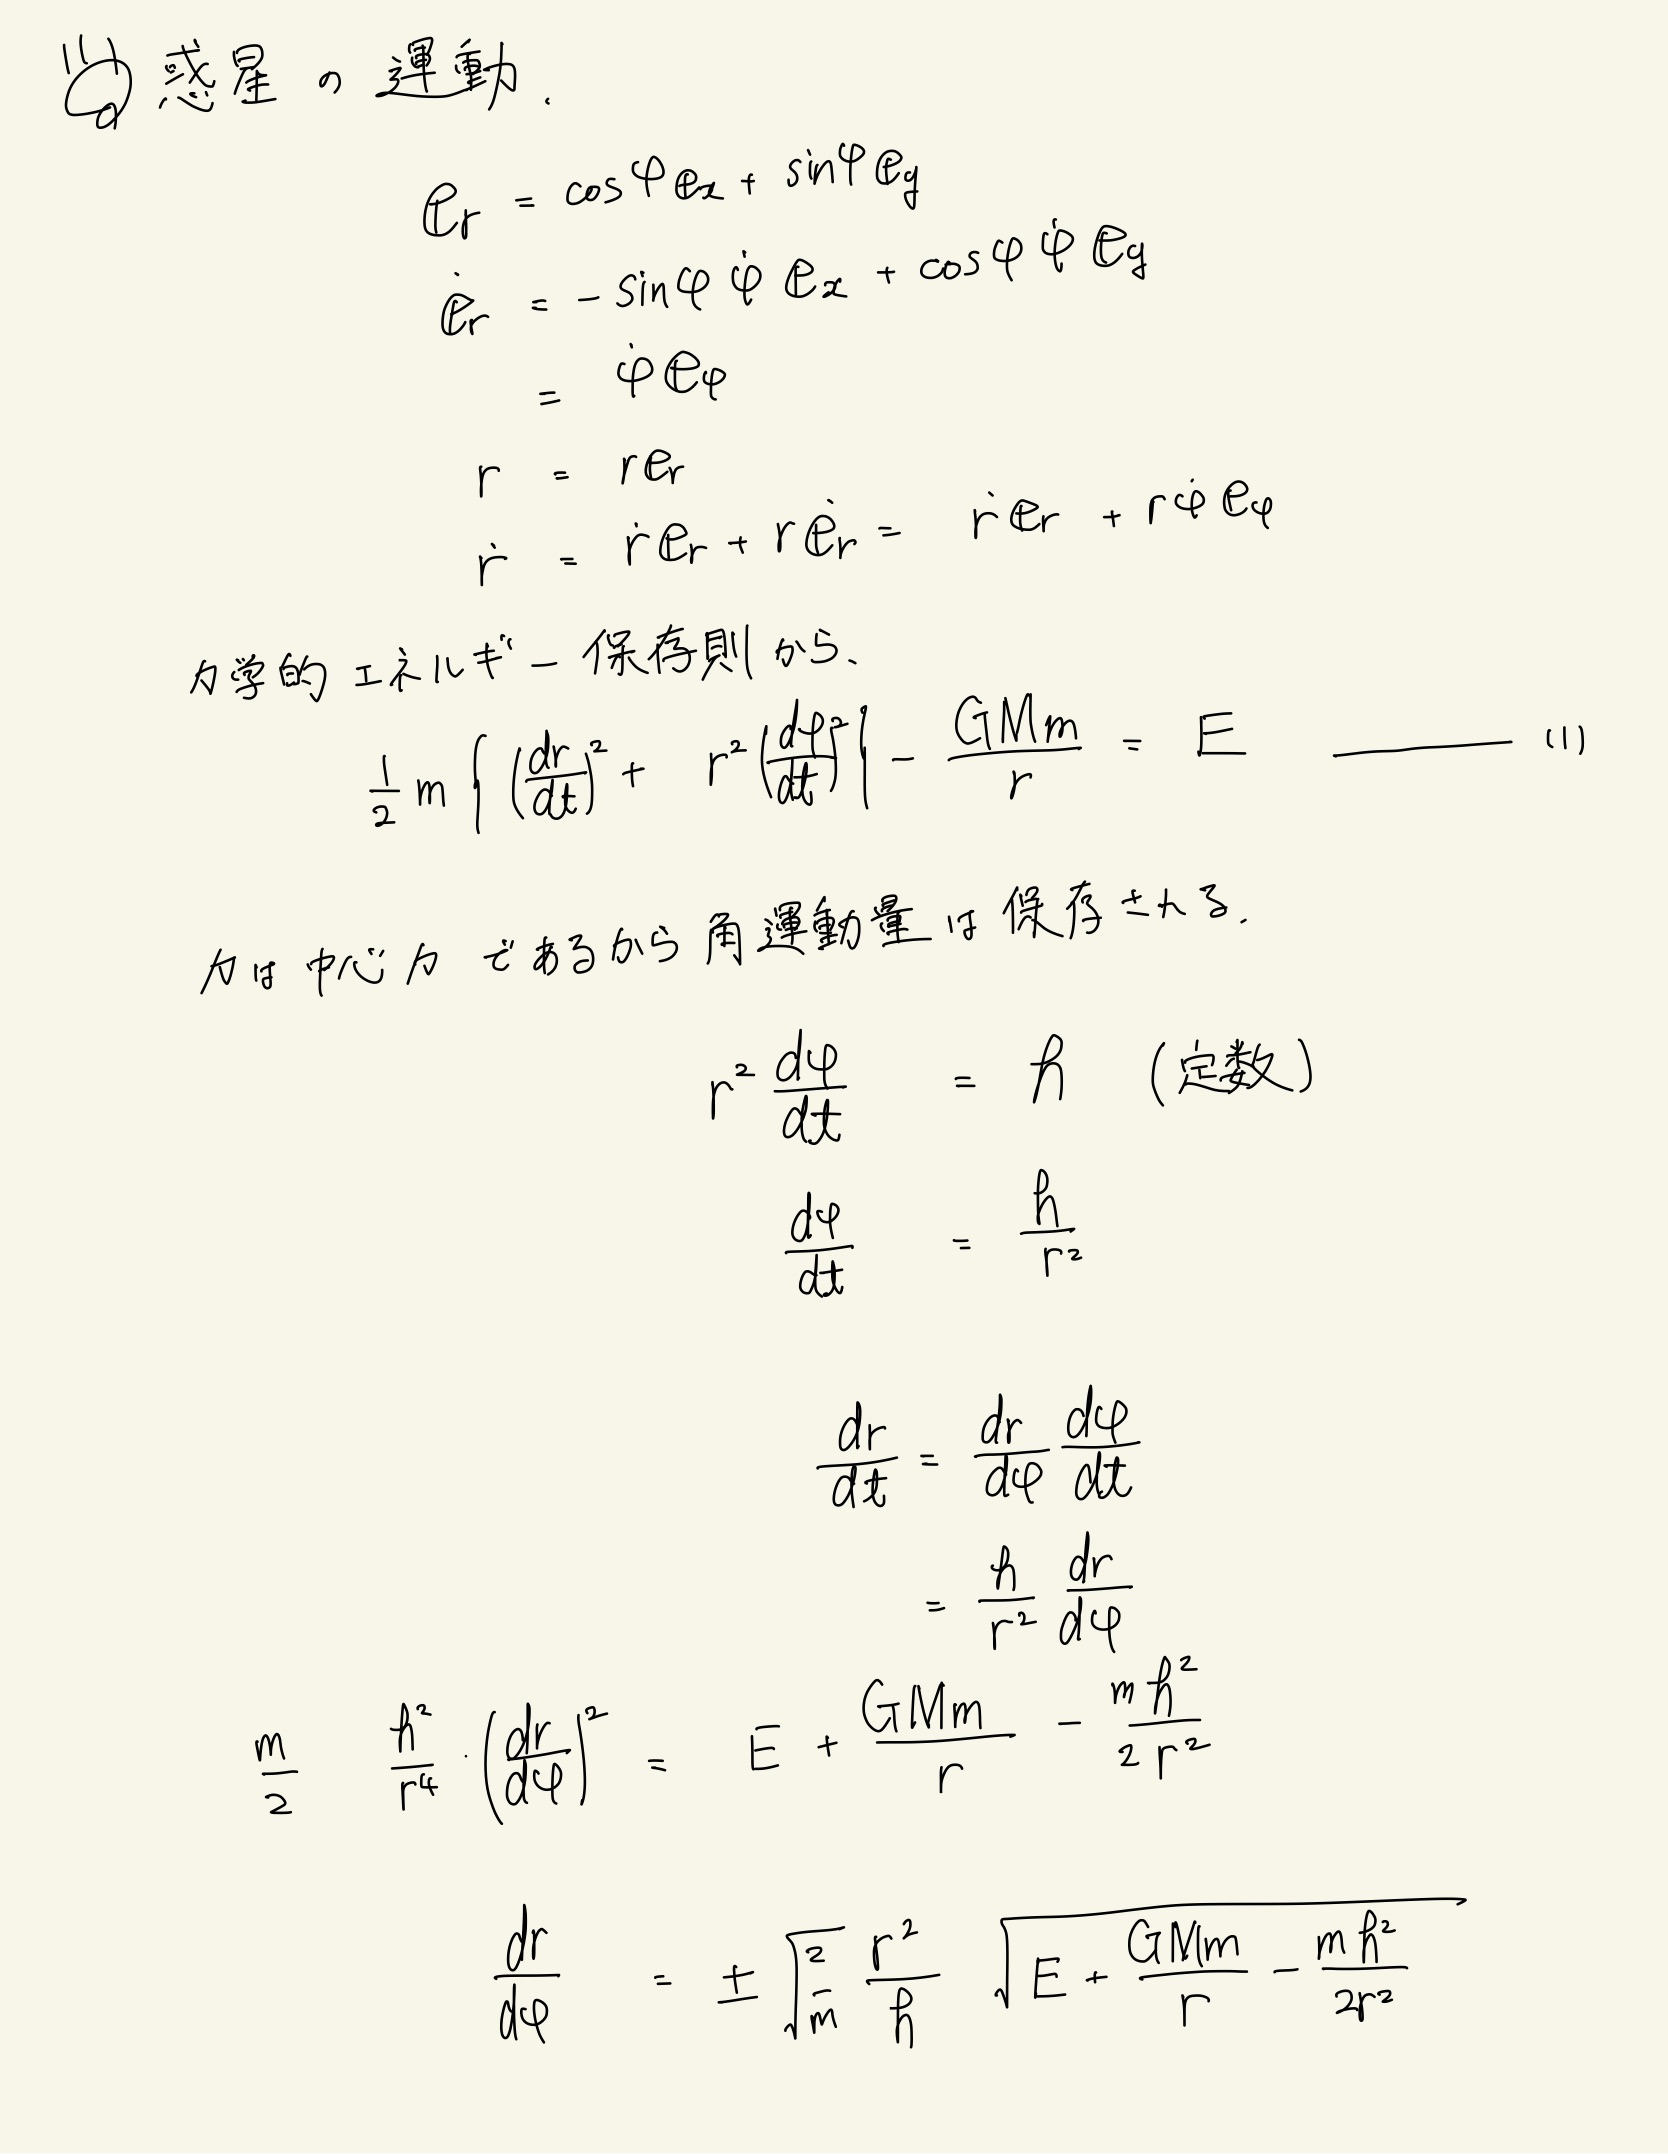 惑星の運動.
e_r = cosφ e_x + sinφ e_y
ė_r = - sinφ φ̇ e_x + cosφ φ̇ e_y
= φ̇ e_φ
r = r e_r
ṙ = ṙ e_r + r ė_r = ṙ e_r + r φ̇ e_φ
力学的エネルギー保存則から、
1/2 m { (dr/dt)² + r² (dφ/dt)² } - GMm/r = E ——— (1)
力は中心力であるから角運動量は保存される.
r² dφ/dt = h (定数)
dφ/dt = h/r²
dr/dt = dr/dφ dφ/dt
= h/r² dr/dφ
m/2 h²/r⁴ · (dr/dφ)² = E + GMm/r - mh²/2r²
dr/dφ = ± √(2/m) r²/h √(E + GMm/r - mh²/2r²)